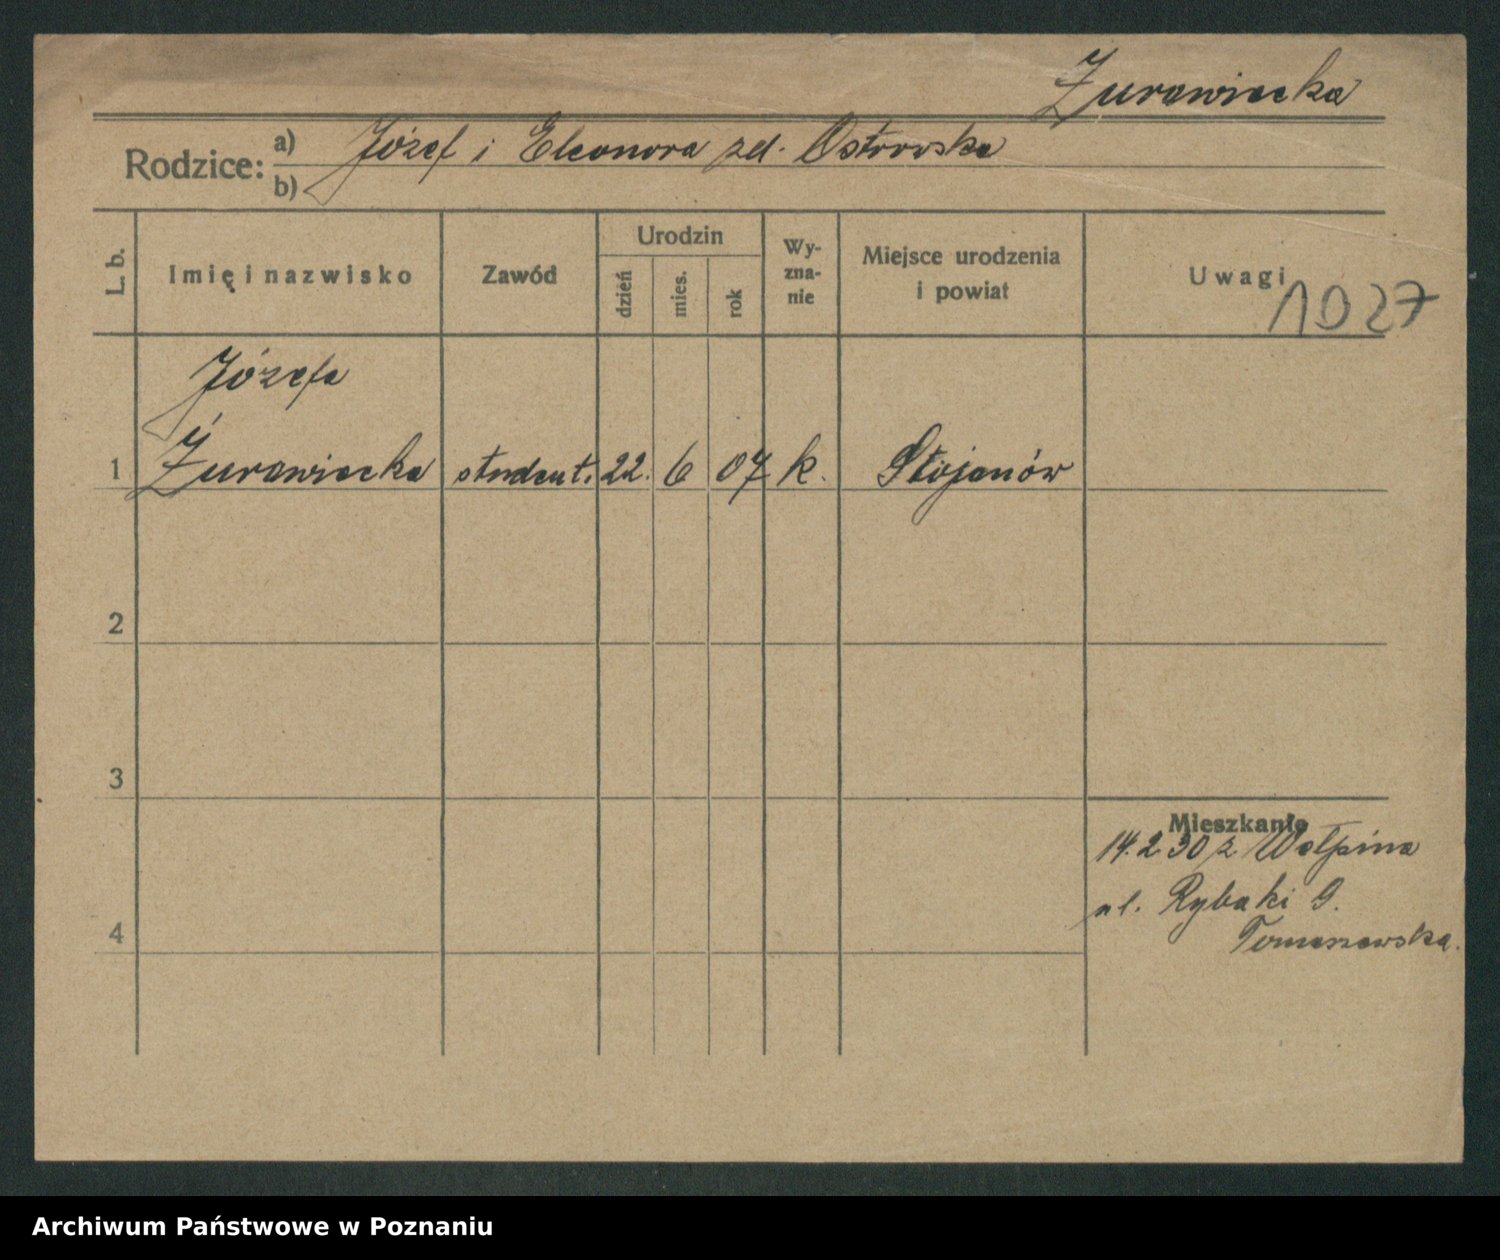 Żurawiecka
Rodzice: a) Józef i Eleonora zd. Ostrowska
b)
L. b.
Imię i nazwisko
Zawód
Urodzin
dzień
mies.
rok
Wy-
zna-
nie
Miejsce urodzenia
i powiat
Uwagi
1027
Józefa
1 Żurawiecka student. 22. 6 07 k. Stojanów
2
3
4
Mieszkanie
14.2.30 z
ul. Rybaki 9.
Tomaszewska.
Archiwum Państwowe w Poznaniu